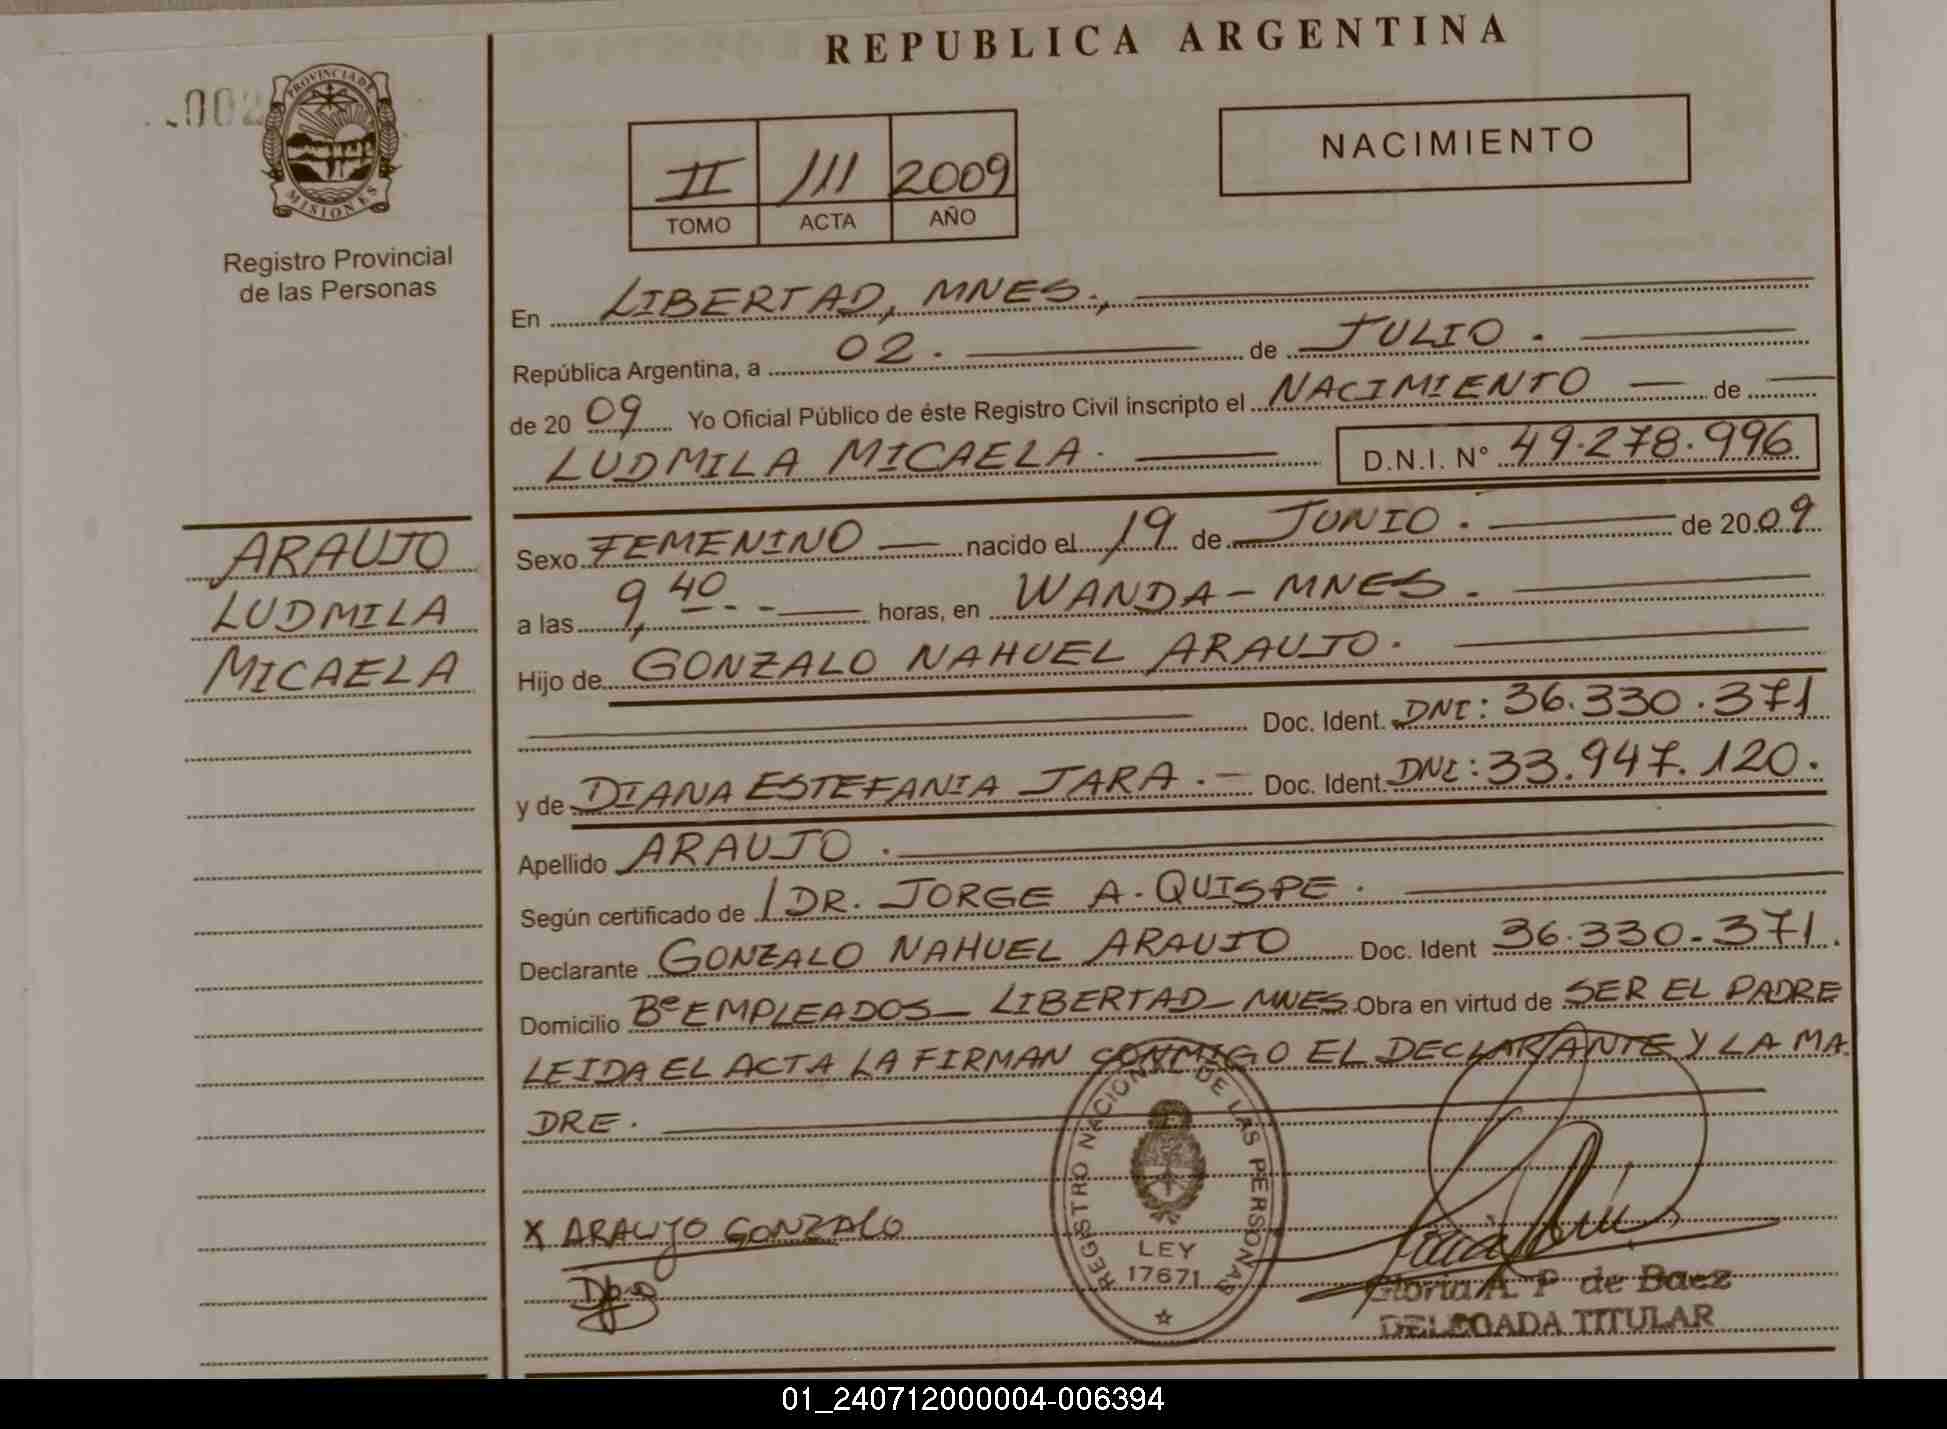 REPUBLICA ARGENTINA
002
PROVINCIA DE
MISIONES
Registro Provincial
de las Personas
II 111 2009
TOMO ACTA AÑO
NACIMIENTO
En LIBERTAD, MNES.,
República Argentina, a 02. de JULIO.
de 2009 Yo Oficial Público de éste Registro Civil inscripto el NACIMIENTO de
LUDMILA MICAELA. D.N.I. N° 49.278.996
ARAUJO
LUDMILA
MICAELA
Sexo FEMENINO nacido el 19 de JUNIO. de 2009
a las 9,40 horas, en WANDA - MNES.
Hijo de GONZALO NAHUEL ARAUJO.
Doc. Ident. DNI: 36.330.371
y de DIANA ESTEFANIA JARA. Doc. Ident. DNI: 33.947.120.
Apellido ARAUJO.
Según certificado de DR. JORGE A. QUISPE.
Declarante GONZALO NAHUEL ARAUJO Doc. Ident 36.330.371.
Domicilio B° EMPLEADOS - LIBERTAD - MNES. Obra en virtud de SER EL PADRE
LEIDA EL ACTA LA FIRMAN CONMIGO EL DECLARANTE Y LA MA
DRE.
REGISTRO NACIONAL DE LAS PERSONAS
LEY
17671
X ARAUJO GONZALO
Gloria A. P de Baez
DELEGADA TITULAR
01_240712000004-006394